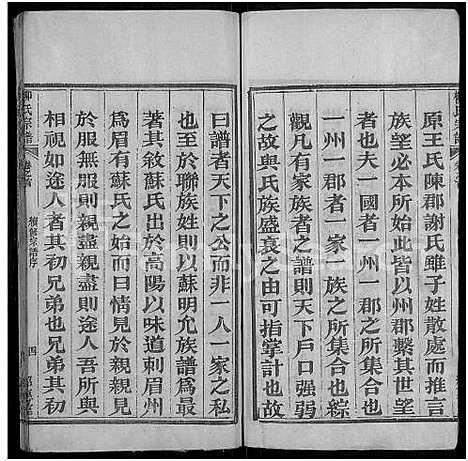 原王氏陳郡謝氏雖子姓散處而推言
族望必本所始此皆以州郡繫其世望
者也夫一國者一州一郡之所集合也
一州一郡者一家一族之所集合也綜
觀凡有家族者之譜則天下戶口強弱
之故與氏族盛衰之由可指掌計也故
曰譜者天下之公而非一人一家之私
也至於聯族姓則以蘇明允族譜爲最
著其敘蘇氏出於高陽以味道刺眉州
爲眉有蘇氏之始而曰情見於親親見
於服無服則親盡親盡則途人吾所與
相視如途人者其初兄弟也兄弟其初
柳氏宗譜
卷首
續修宗譜序
四